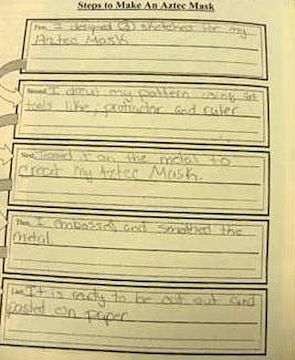 Steps to Make An Aztec Mask
First, I designed (3) sketches for my
Aztec Mask.
Second, I drew my pattern using art
tools like, protractor and ruler
Next, I on the metal to
creat my Aztec Mask.
Then, I embossed and smoothed the
metal.
Last, It is ready to be cut out and
pasted on paper